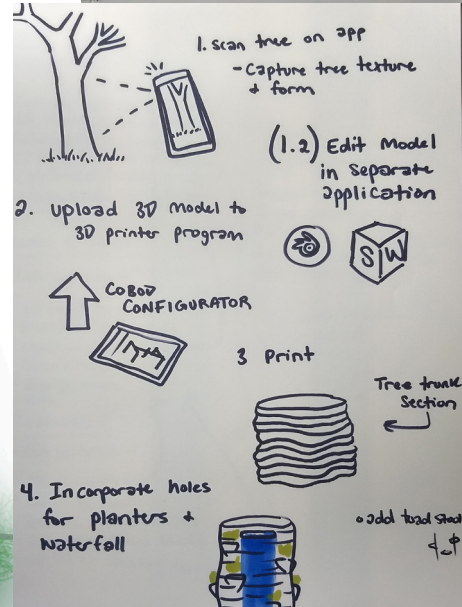 1. Scan tree on app
- Capture tree texture
& form
(1.2) Edit Model
in separate
application
2. Upload 3D Model to
3D printer program
S W
COBOD
CONFIGURATOR
3 Print
Tree trunk
Section
4. Incorporate holes
for planters &
waterfall
add toad